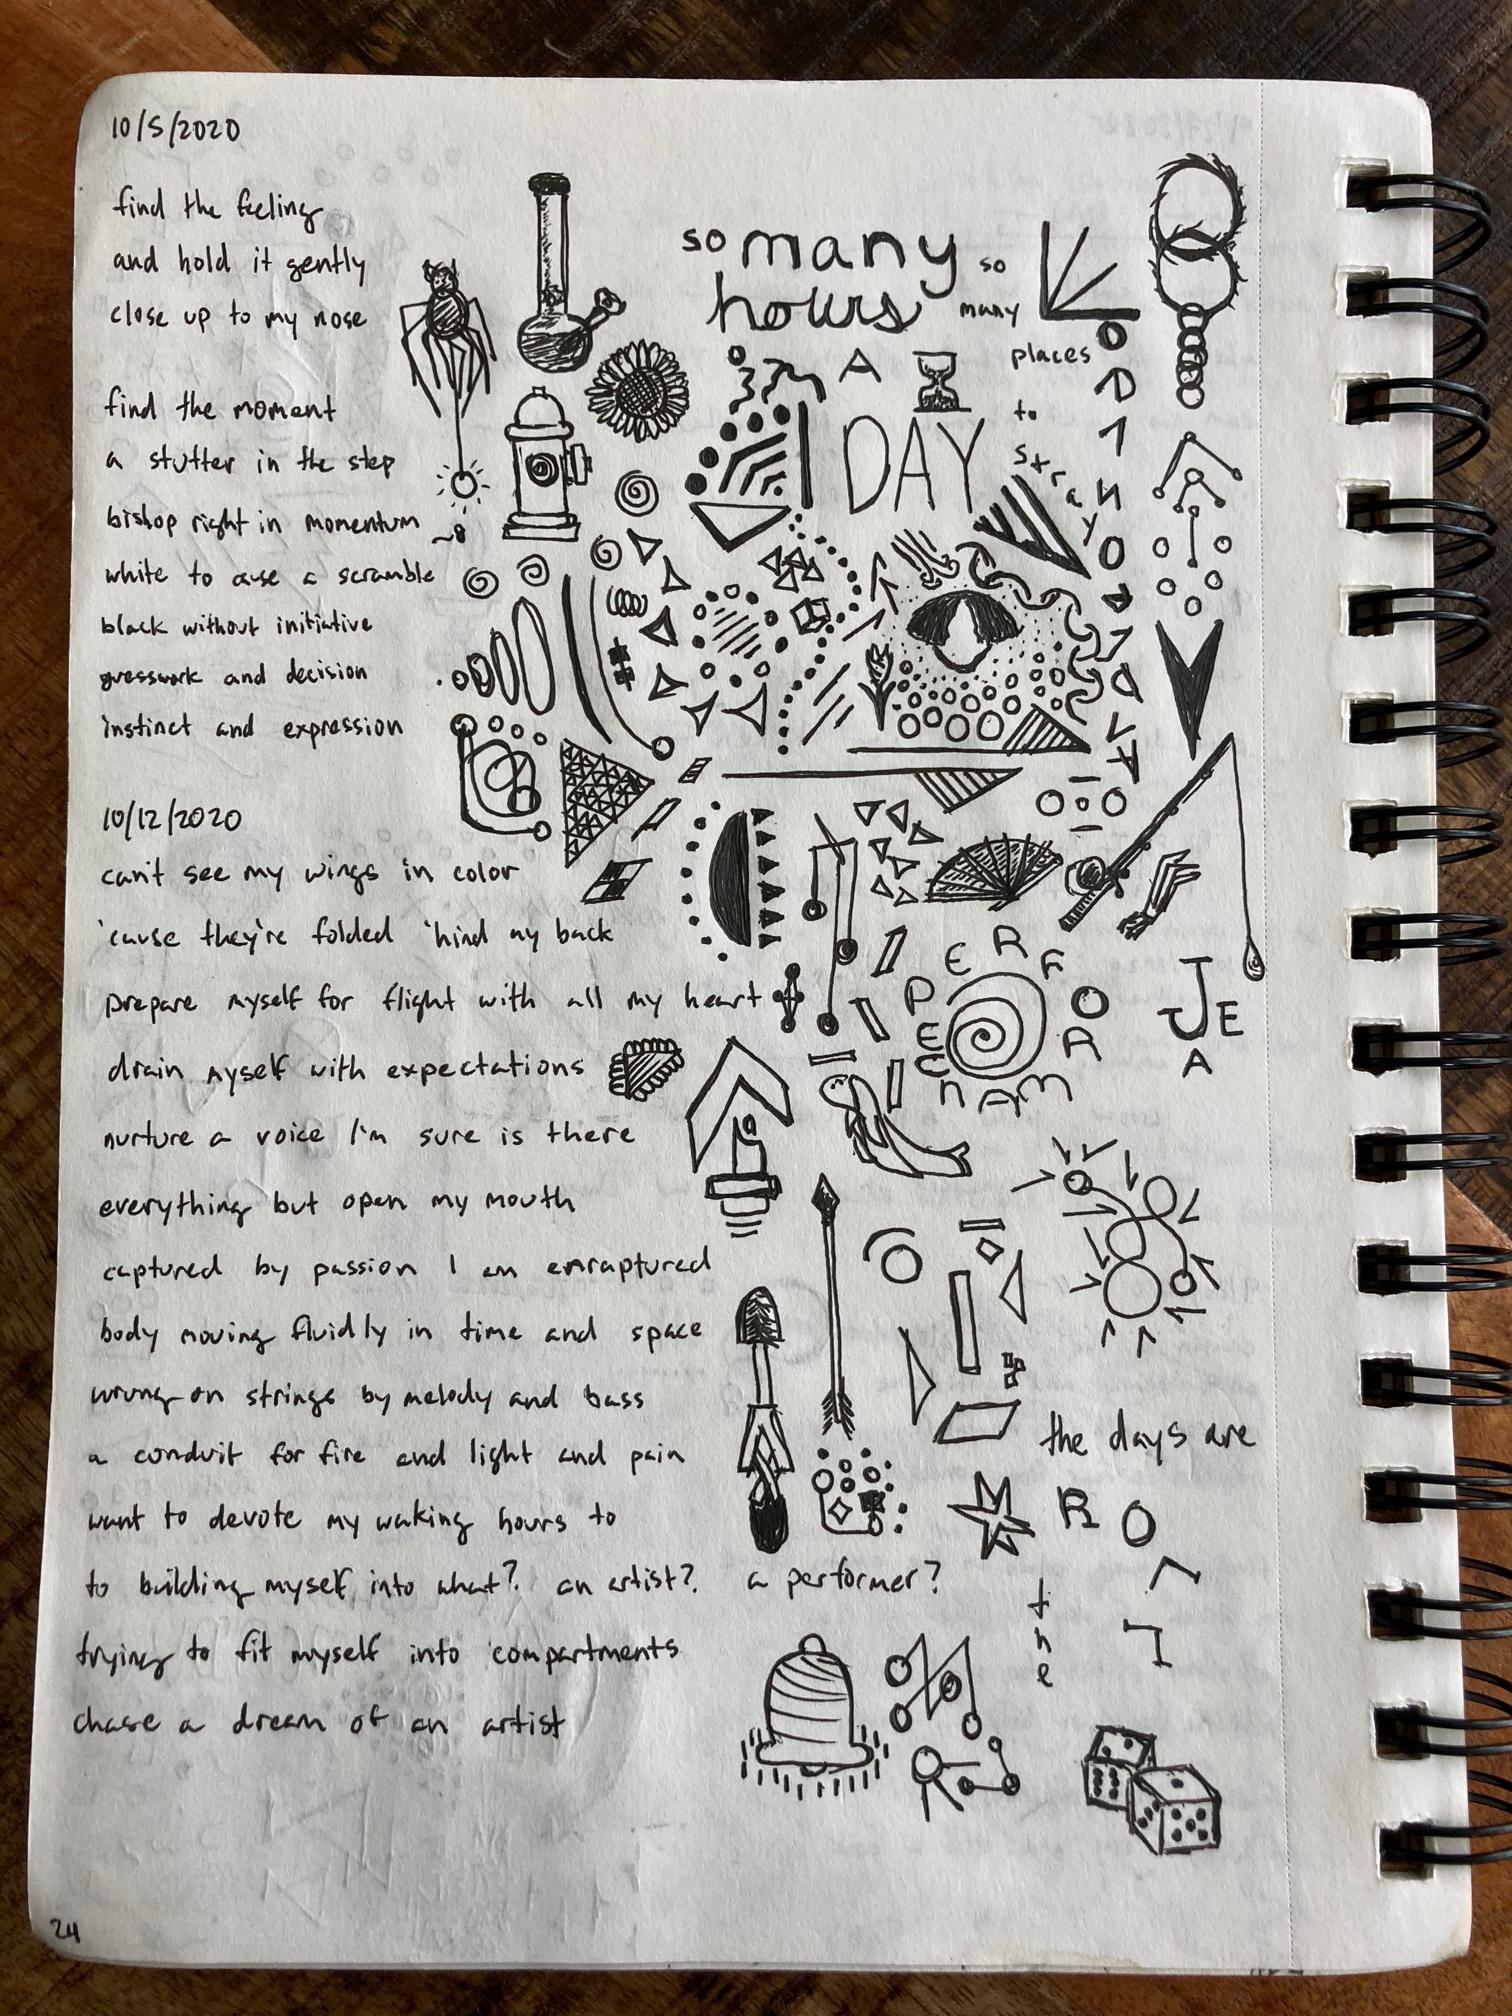 10/5/2020
find the feeling
and hold it gently
close up to my nose
find the moment
a stutter in the step
bishop right in momentum
white to cause a scramble
black without initiative
guesswork and decision
instinct and expression
so many so
hours many
places
to
stray
A
DAY
10/12/2020
can't see my wings in color
'cause they're folded 'hind my back
prepare myself for flight with all my heart
drain myself with expectations
nurture a voice I'm sure is there
everything but open my mouth
captured by passion I am enraptured
body moving fluidly in time and space
wrung on strings by melody and bass
a conduit for fire and light and pain
want to devote my waking hours to
to building myself into what? an artist? a performer?
trying to fit myself into compartments
chase a dream of an artist
PERFOR
MANCE
the days are
RO
the
24